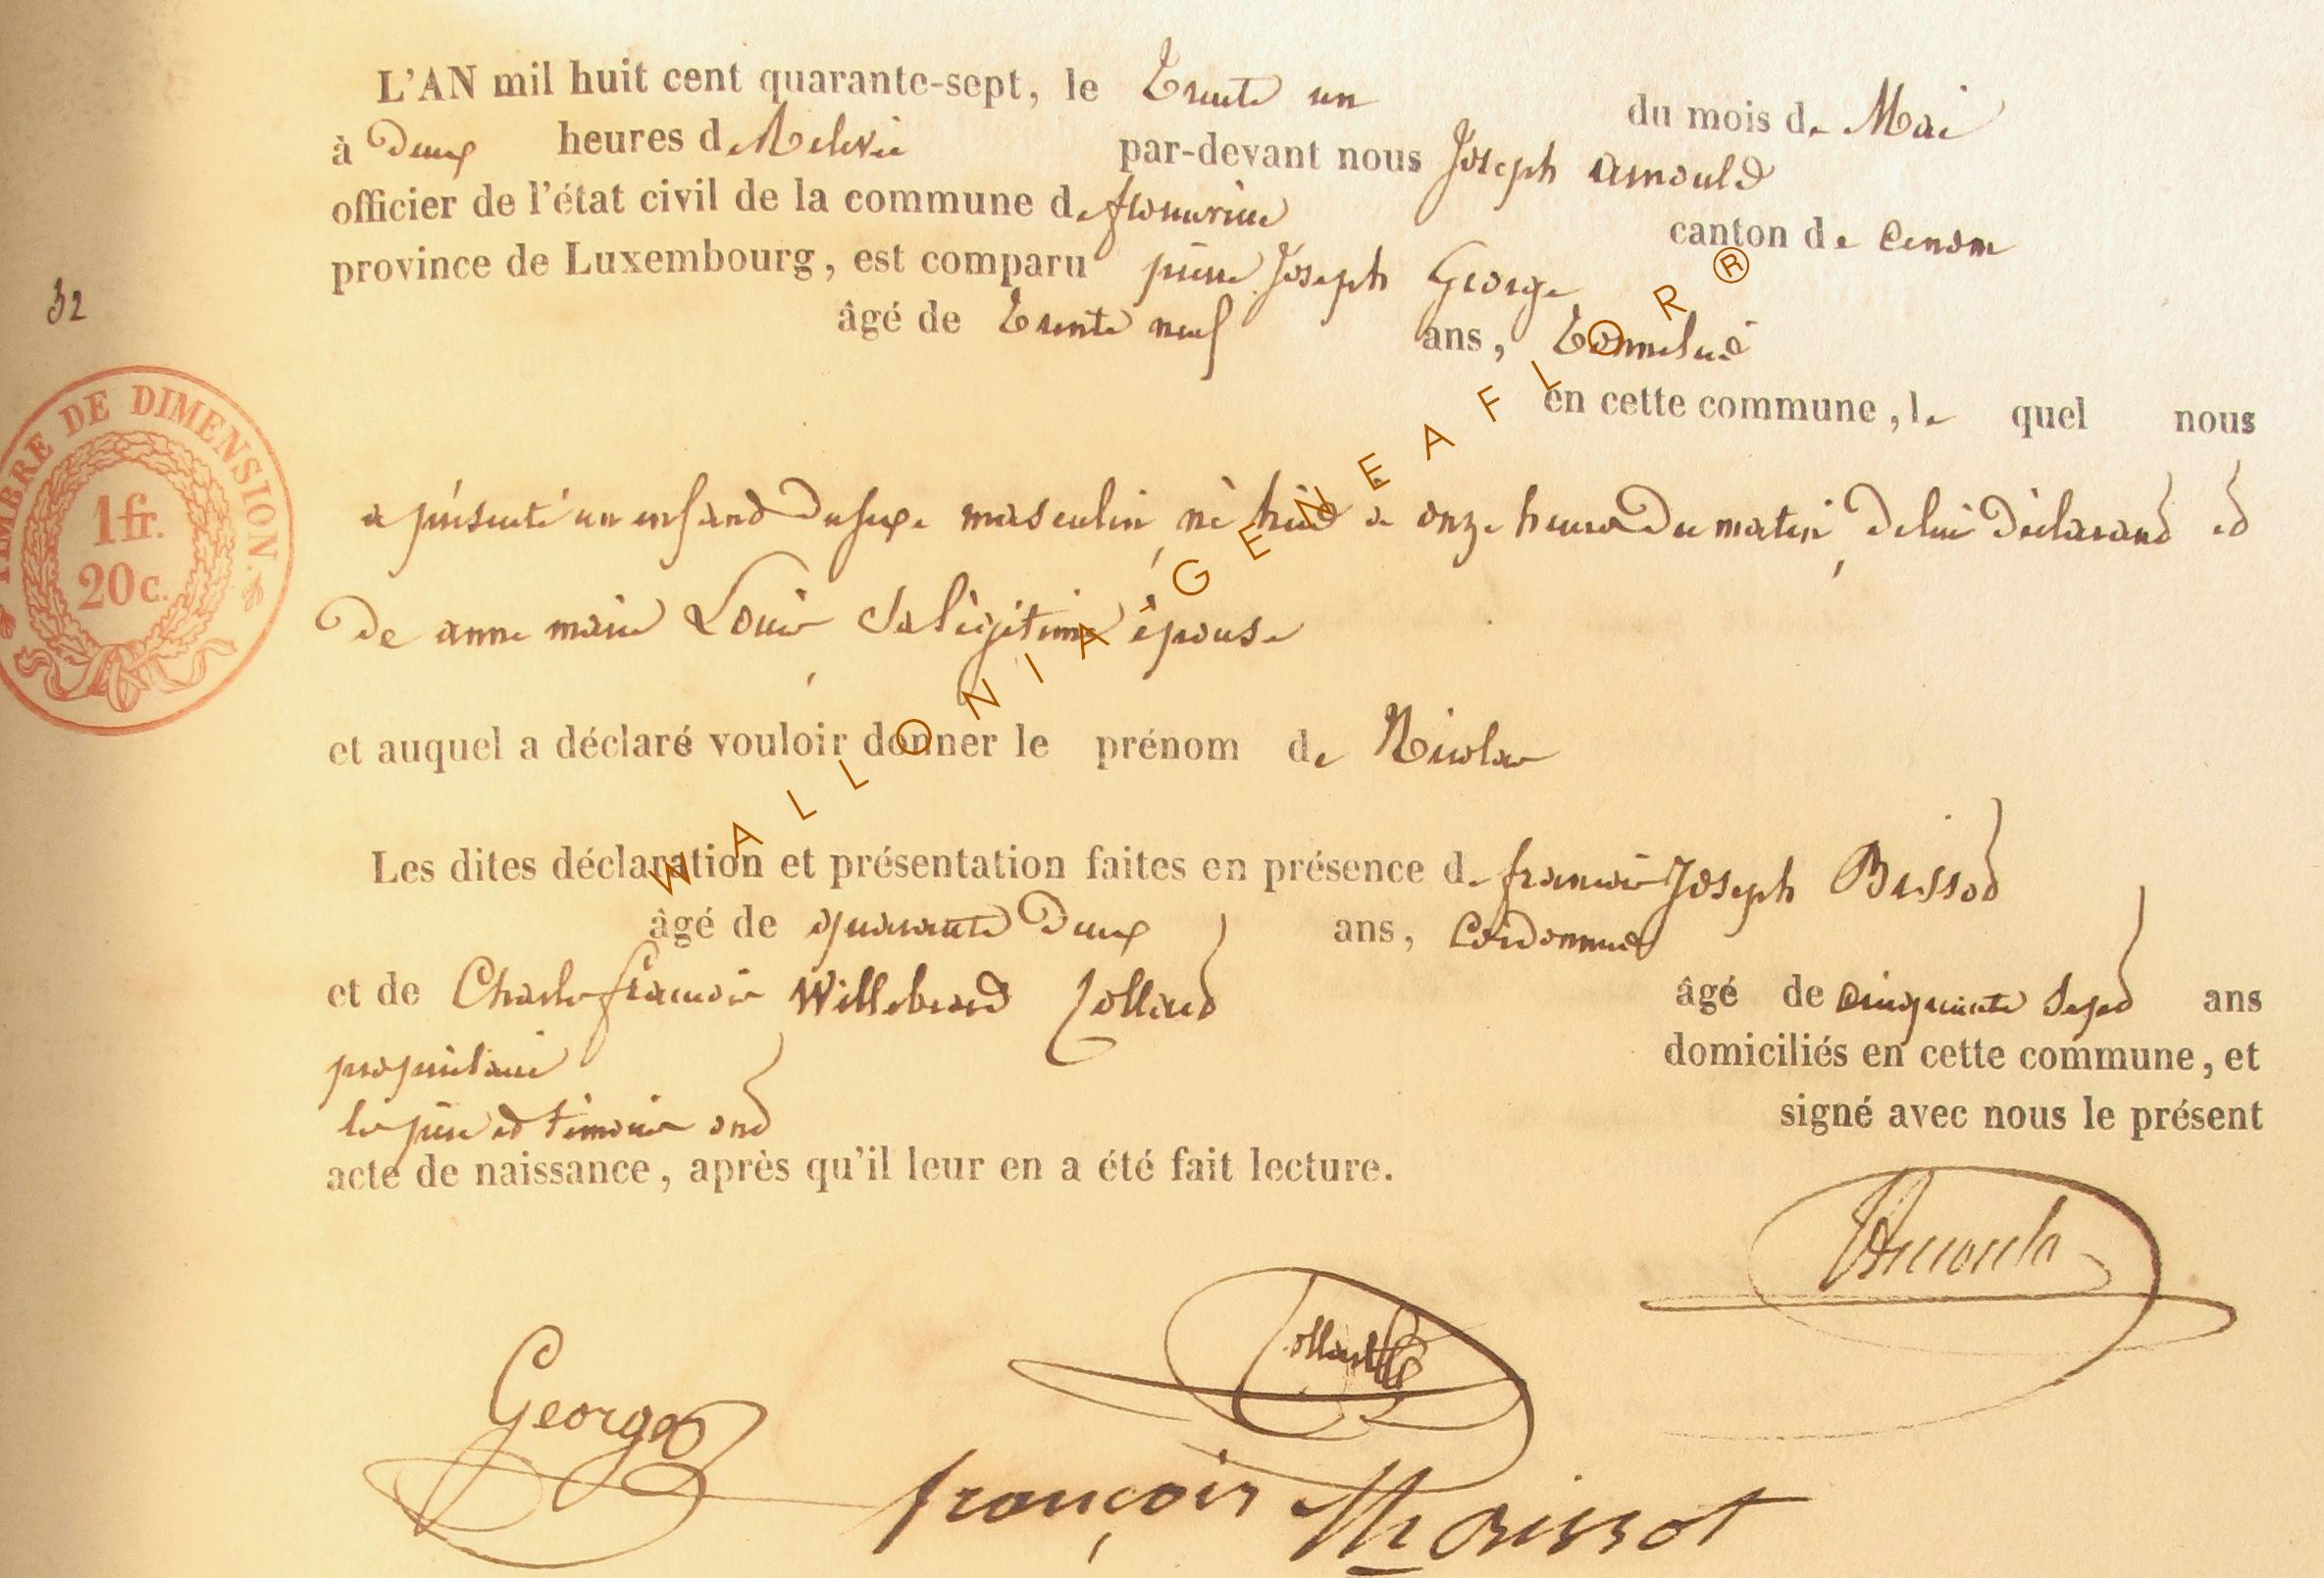 L'AN mil huit cent quarante-sept, le Trente un du mois de Mai
à Deux heures de Relevée par-devant nous Joseph Arnould
officier de l'état civil de la commune de florenville canton de
province de Luxembourg, est comparu pierre Joseph George
âgé de Trente neuf ans, Tonnelier
en cette commune, le quel nous
32
TIMBRE DE DIMENSION.
1 fr.
20 c.
a présenté un enfant du sexe masculin, né hier a onze heures du matin, de lui déclarant et
De anne marie Louis, sa légitime épouse
et auquel a déclaré vouloir donner le prénom de Nicolas
Les dites déclaration et présentation faites en présence de françois Joseph Brissot
âgé de quarante Deux ans, Cordonnier
et de Charles françois Willebrord Collard âgé de cinquante sept ans
propriétaire domiciliés en cette commune, et
les père et témoins ont signé avec nous le présent
acte de naissance, après qu'il leur en a été fait lecture.
JArnould
Collard
George
françois Brissot
WALLONIA GENEAFLOR ®